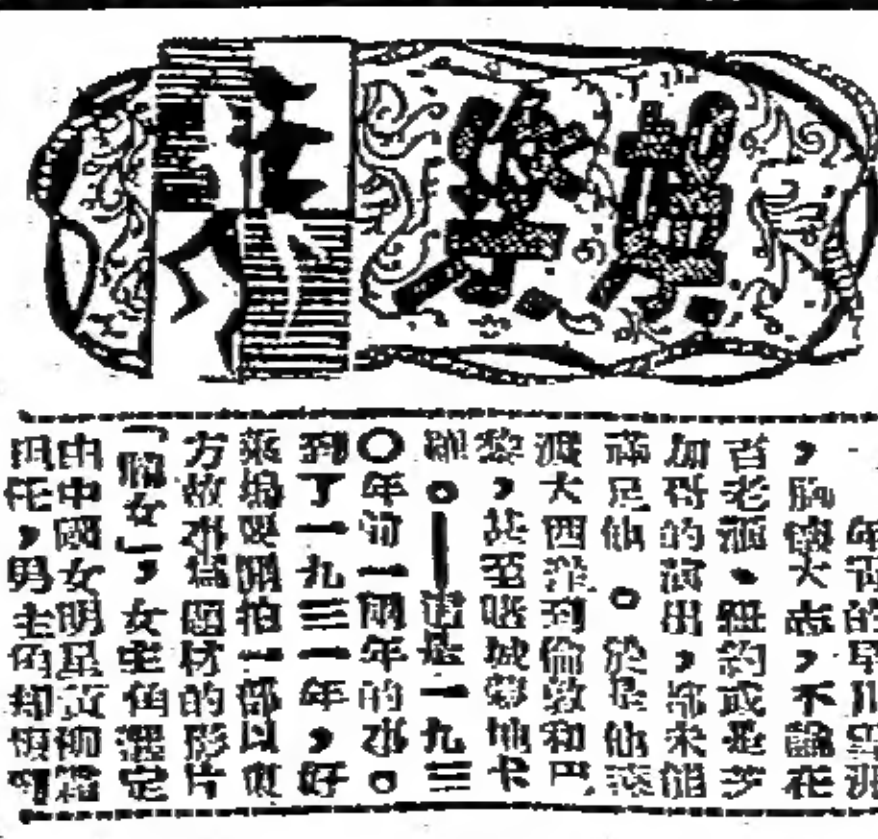 年青的早川雪洲
，胸懷大志，不論在
百老滙・紐約或是芝
加哥的演出，都未能
滿足他。於是他遠
渡大西洋到倫敦和巴
黎，甚至賭城蒙地卡
羅。—這是一九三
〇年前一兩年的事。
到了一九三一年，好
萊塢要開拍一部以東
方故事為題材的影片
「龍女」，女主角選定
由中國女明星黃柳霜
担任，男主角却